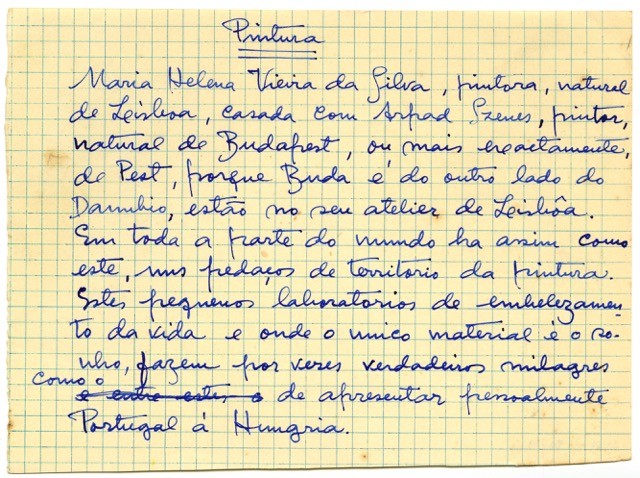 Pintura
Maria Helena Vieira da Silva, pintora, natural
de Leisboa, casada com Arpad Szenes, pintor,
natural de Budapest, ou mais exactamente,
de Pest, porque Buda é do outro lado do
Danubio, estão no seu atelier de Leisbôa.
Em toda a parte do mundo ha assim como
este, uns pedaços de território da pintura.
Estes pequenos laboratorios de embelezamen-
to da vida e onde o unico material é o so-
nho, fazem por vezes verdadeiros milagres
como o
e entre estes o de apresentar pessoalmente
Portugal á Hungria.